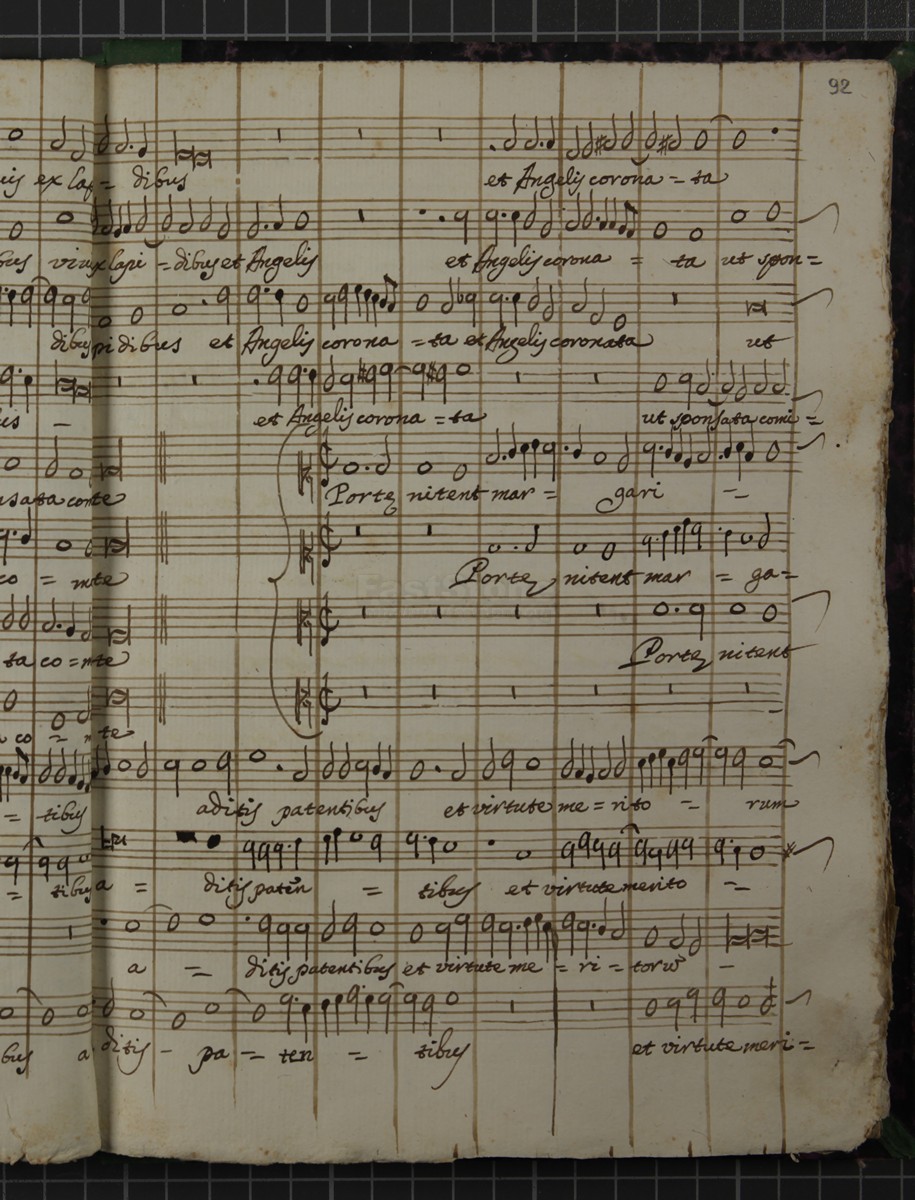 92
ex lap= dibus et Angelis corona = ta
lapi = dibus et Angelis et Angelis corona = ta ut spon=
dibus pi dibus et Angelis corona = ta et Angelis coronata ut
et Angelis corona = ta ut sponsata comi =
Porte nitent mar = gari =
co = mte Porte nitent mar = ga=
ta co = mte Porte nitent
co = mte
= tibus aditis patentibus et virtute me = rito = rum
= tibus a = ditis paten = tibus et virtute merito =
a = ditis patentibus et virtute me = ri = torum =
bus a ditis = pa = ten = tibus et virtute meri =